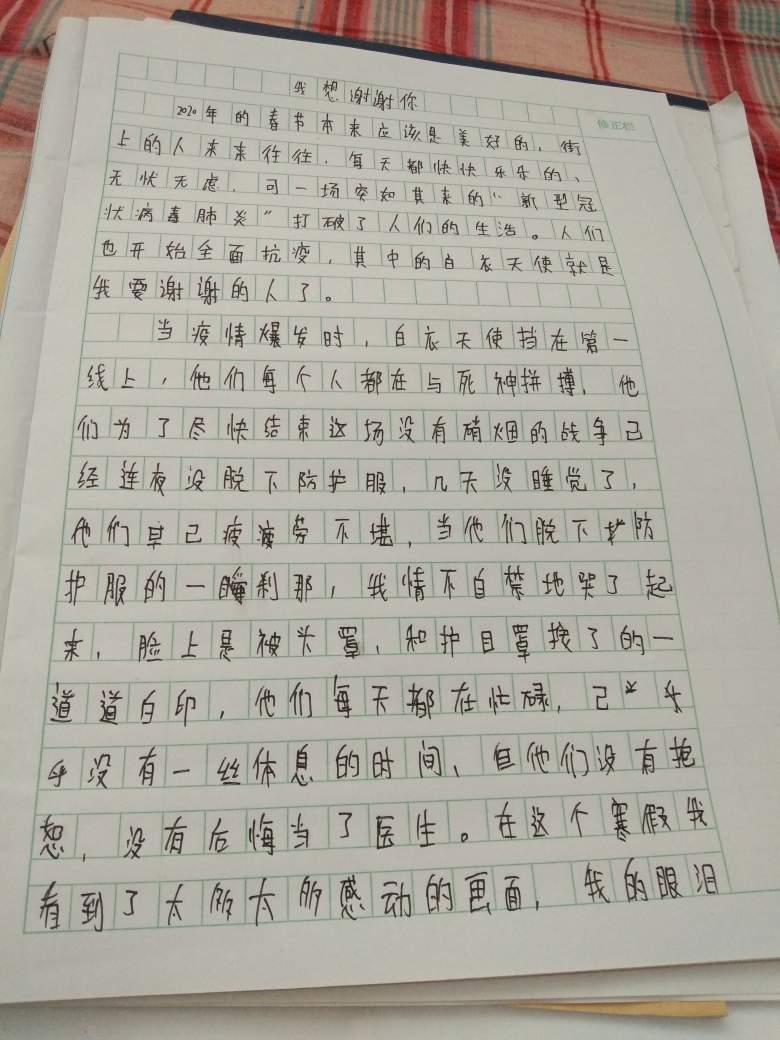 我想谢谢你
修正栏
2020年的春节本来应该是美好的，街
上的人来来往往，每天都快快乐乐的、
无忧无虑，可一场突如其来的“新型冠
状病毒肺炎”打破了人们的生活。人们
也开始全面抗疫，其中的白衣天使就是
我要谢谢的人了。
当疫情爆发时，白衣天使挡在第一
线上，他们每个人都在与死神拼搏，他
们为了尽快结束这场没有硝烟的战争已
经连夜没脱下防护服，几天没睡觉了，
他们早已疲劳不堪，当他们脱下防
护服的一刹那，我情不自禁地哭了起
来，脸上是被头罩、和护目罩挨了的一
道道白印，他们每天都在忙碌，已乎
乎没有一丝休息的时间、但他们没有抱
怨，没有后悔当了医生。在这个寒假我
看到了太多太多感动的画面，我的眼泪